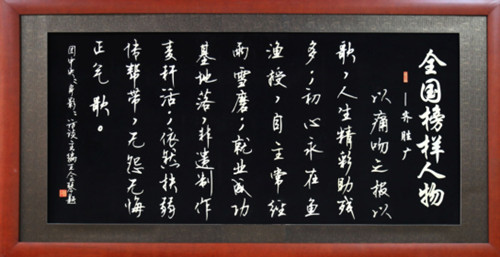 全国榜样人物
——齐胜广
以痛吻之报以
歌，人生精彩助残
多；初心永在鱼
渔授，自主常经
雨雪磨；就业成功
基地落，非遗制作
麦秆活；依然扶弱
传帮带，无怨无悔
正气歌。